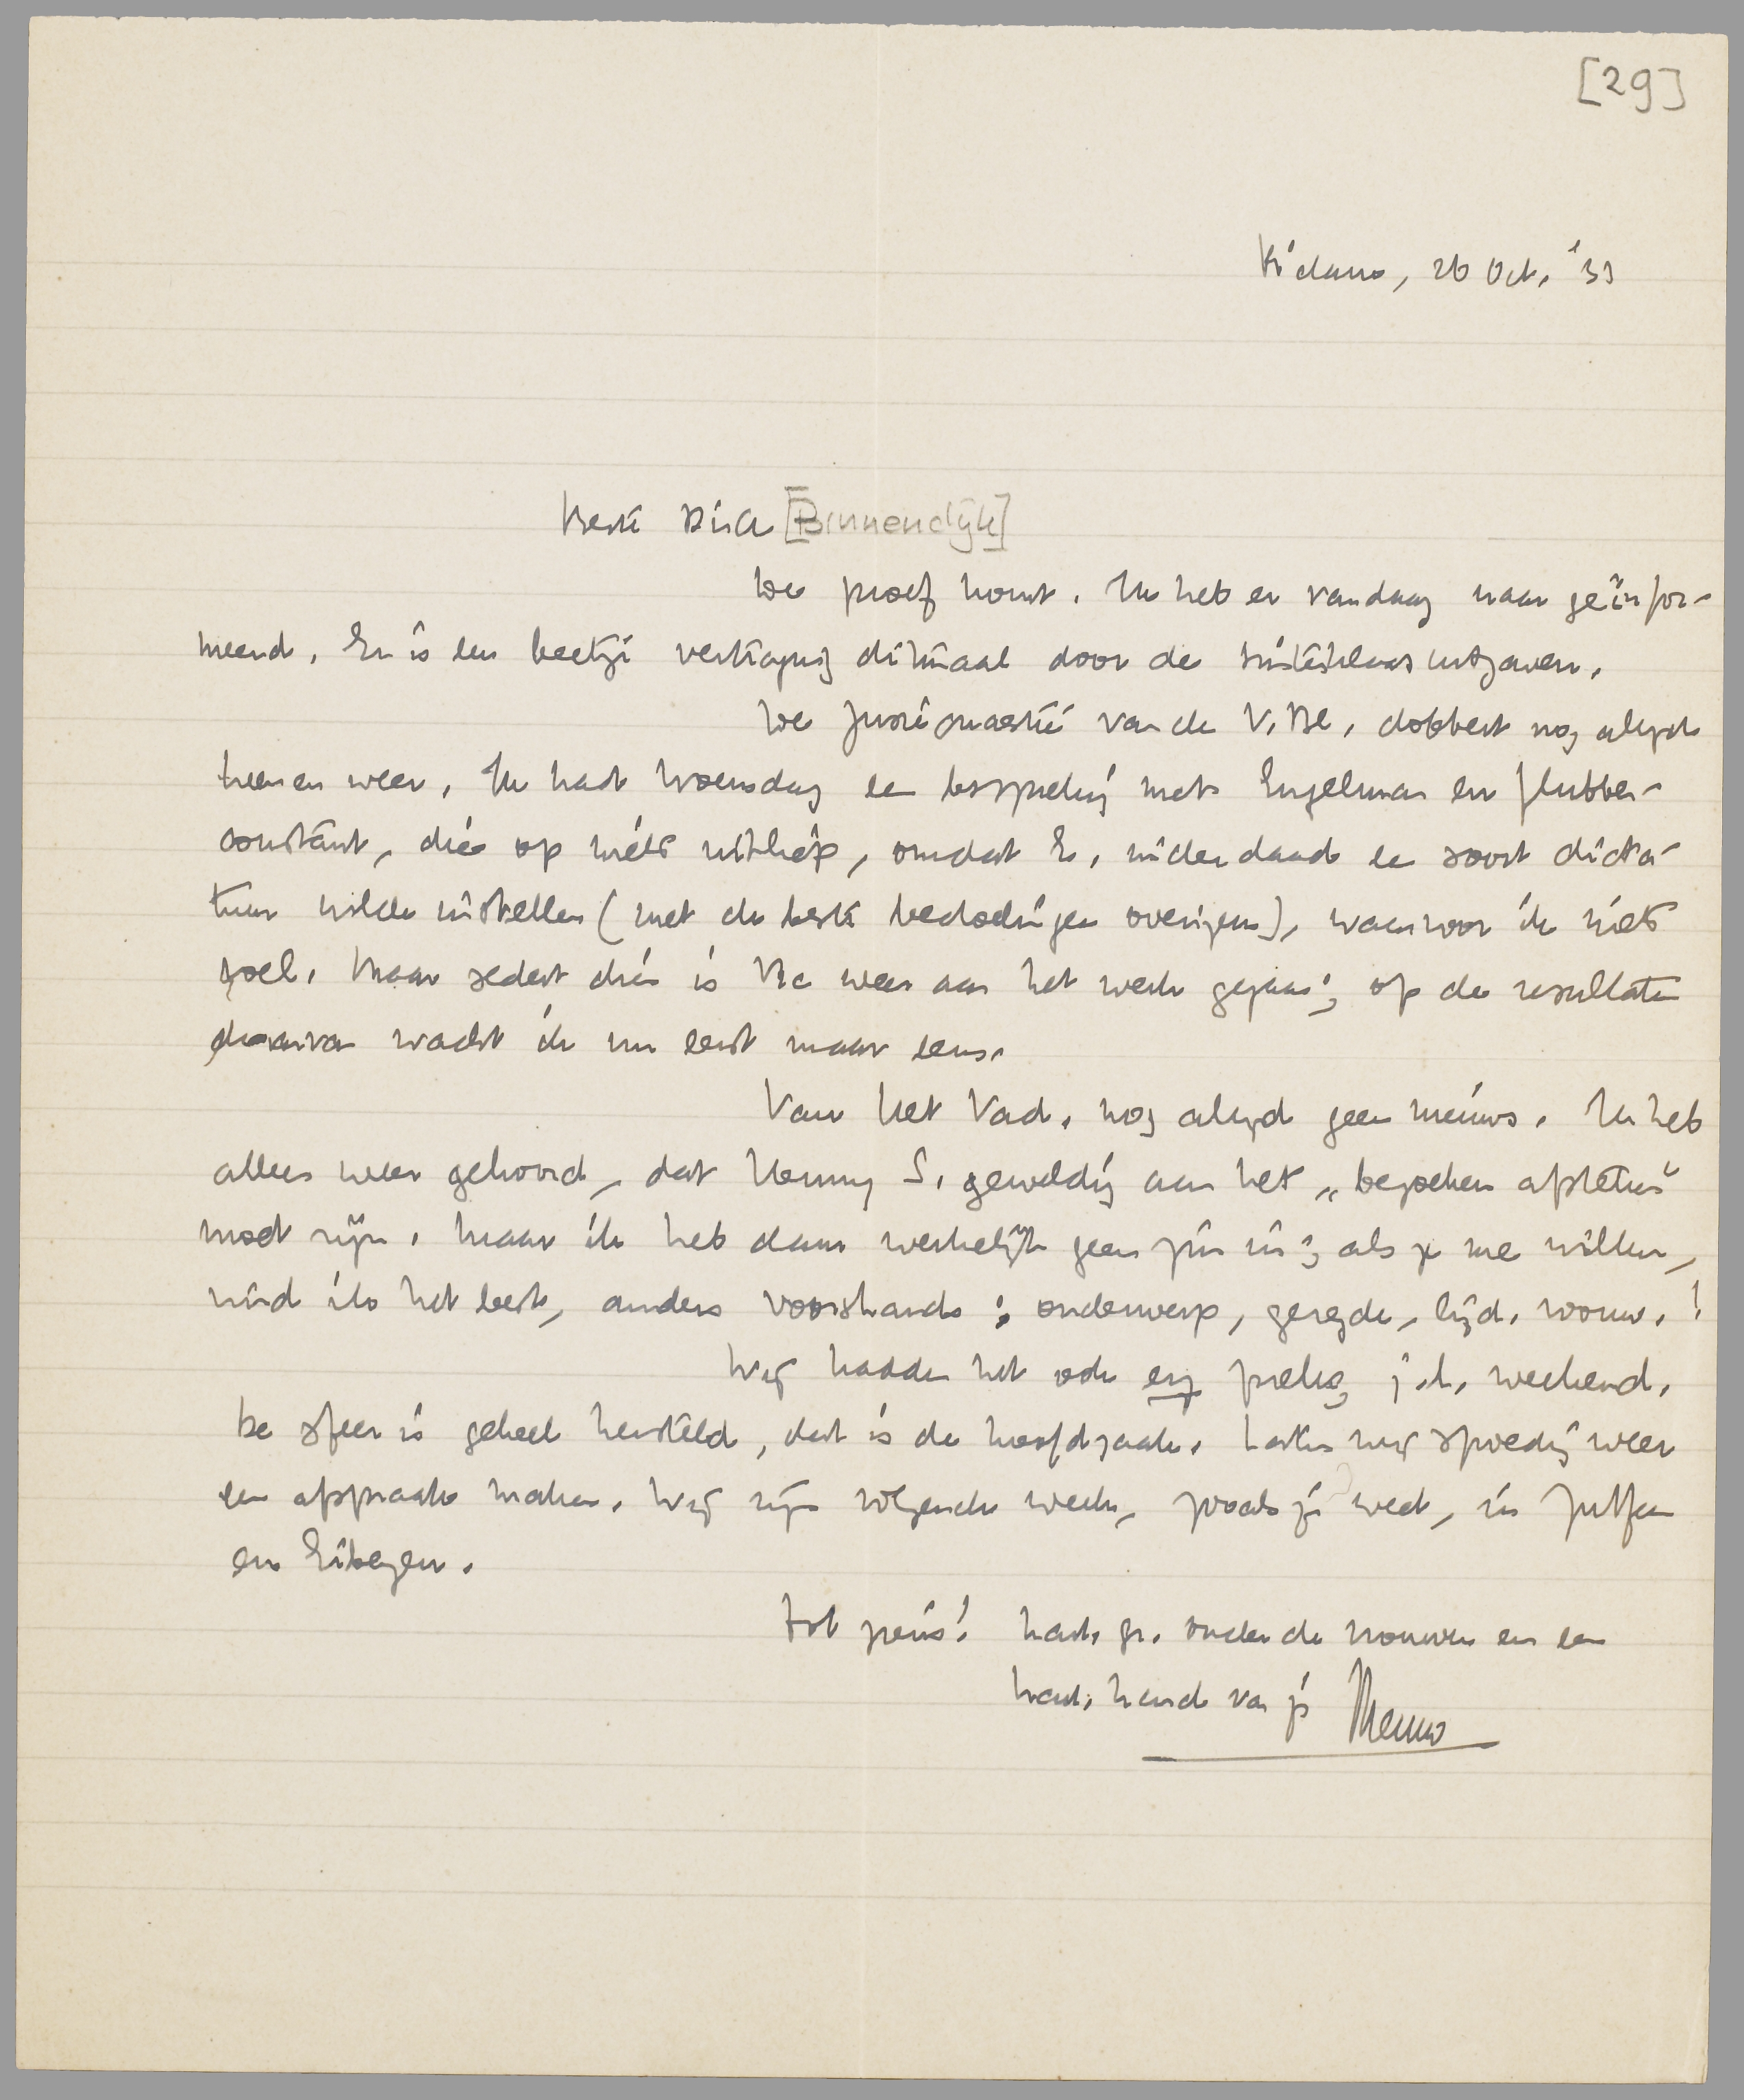 [29]
R'dam, 26 Oct. '33
Beste Dick [Binnendijk]
De proef komt. Ik heb er vandaag naar geïnfor-
meerd. Er is een beetje vertraging ditmaal door de Sinterklaasuitgaven.
De quaestie van de V. Bl. dobbert nog altijd
heen en weer. Ik had Woensdag een bespreking met Engelman en
constant, die op niets uitliep, omdat E. inderdaad een soort dicta-
tuur wilde instellen (met de beste bedoelingen overigens), waarvoor ik niets
voel. Maar sedert dien is Vic weer aan het werk gegaan; op de resultaten
daarvan wacht ik nu eerst maar eens.
Van Het Vad. nog altijd geen nieuws. Ik heb
alleen weer gehoord, dat Henny S. geweldig aan het „bezoeken afsteken"
moet zijn. Maar ik heb daar werkelijk geen zin in; als ze me willen,
vind ik het best, anders voorshands: onderwerp, gezegde, lijd. voorw.!
Wij hadden het ook erg prettig j.l. weekend.
De sfeer is geheel hersteld, dat is de hoofdzaak. Laten wij spoedig weer
een afspraak maken. Wij zijn volgende week, zooals je weet, in Zutfen
en Eibergen.
Tot ziens! hart. gr. onder de vrouwen en een
hart. hand van je Menno